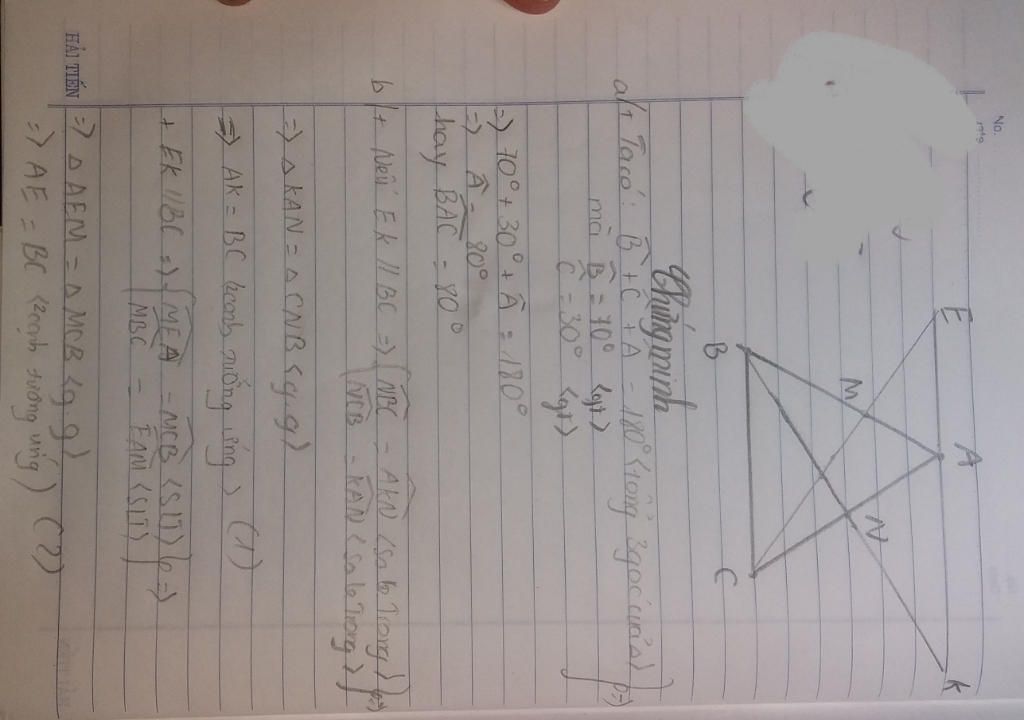 No.
E A K
M N
B C
Chứng minh
a/+ Ta có: B̂ + Ĉ + Â = 180° (tổng 3 góc của Δ)
mà B̂ = 70° (gt)
Ĉ = 30° (gt)
=> 70° + 30° + Â = 180°
=> Â = 80°
hay BAC = 80°
b/+ Nếu EK // BC => NBC = AKN (so le trong)
NCB = KAN (so le trong) =>
=> Δ KAN = Δ CNB (g.g)
=> AK = BC (2 cạnh tương ứng) (1)
+ EK // BC => MEA = MCB (SLT)
MBC = EAM (SLT) =>
=> Δ AEM = Δ MCB (g g)
=> AE = BC (2 cạnh tương ứng) (2)
HẢI TIẾN